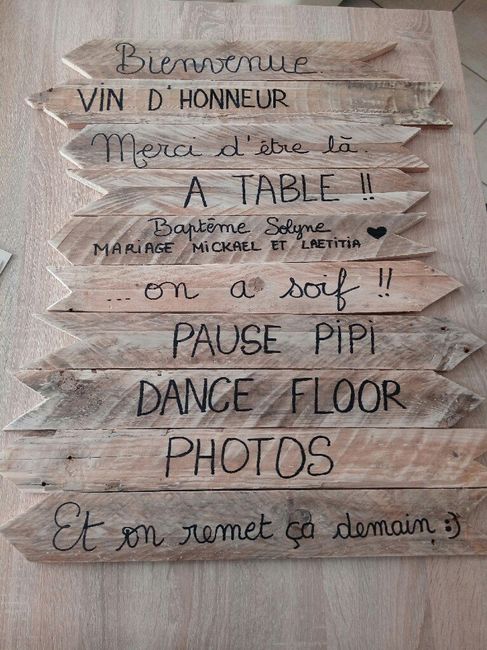 Bienvenue.
VIN D'HONNEUR
Merci d'être là.
A TABLE !!
Baptême Solyne
MARIAGE MICKAEL ET LAETITIA
... on a soif !!
PAUSE PIPI
DANCE FLOOR
PHOTOS
Et on remet ça demain :)